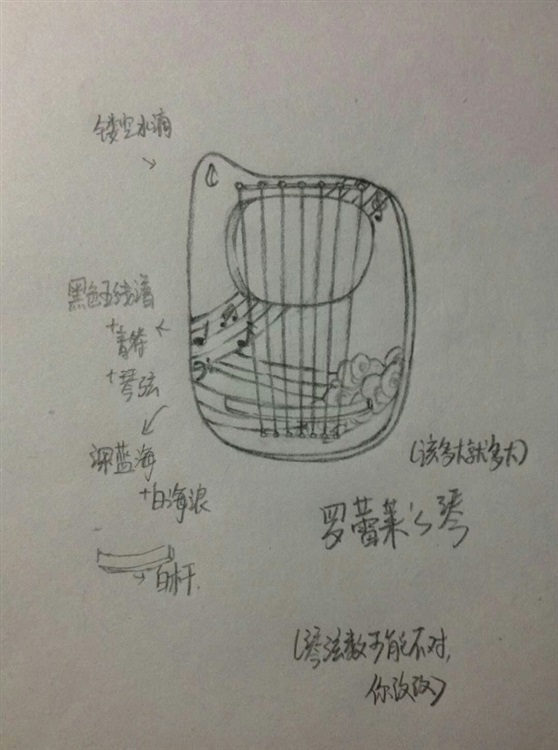 镂空水滴
黑色五线谱
+音符
+琴弦
深蓝海
+白海浪
白杆
(该多大就多大)
罗蕾莱's琴
(琴弦数可能不对,
你改改)